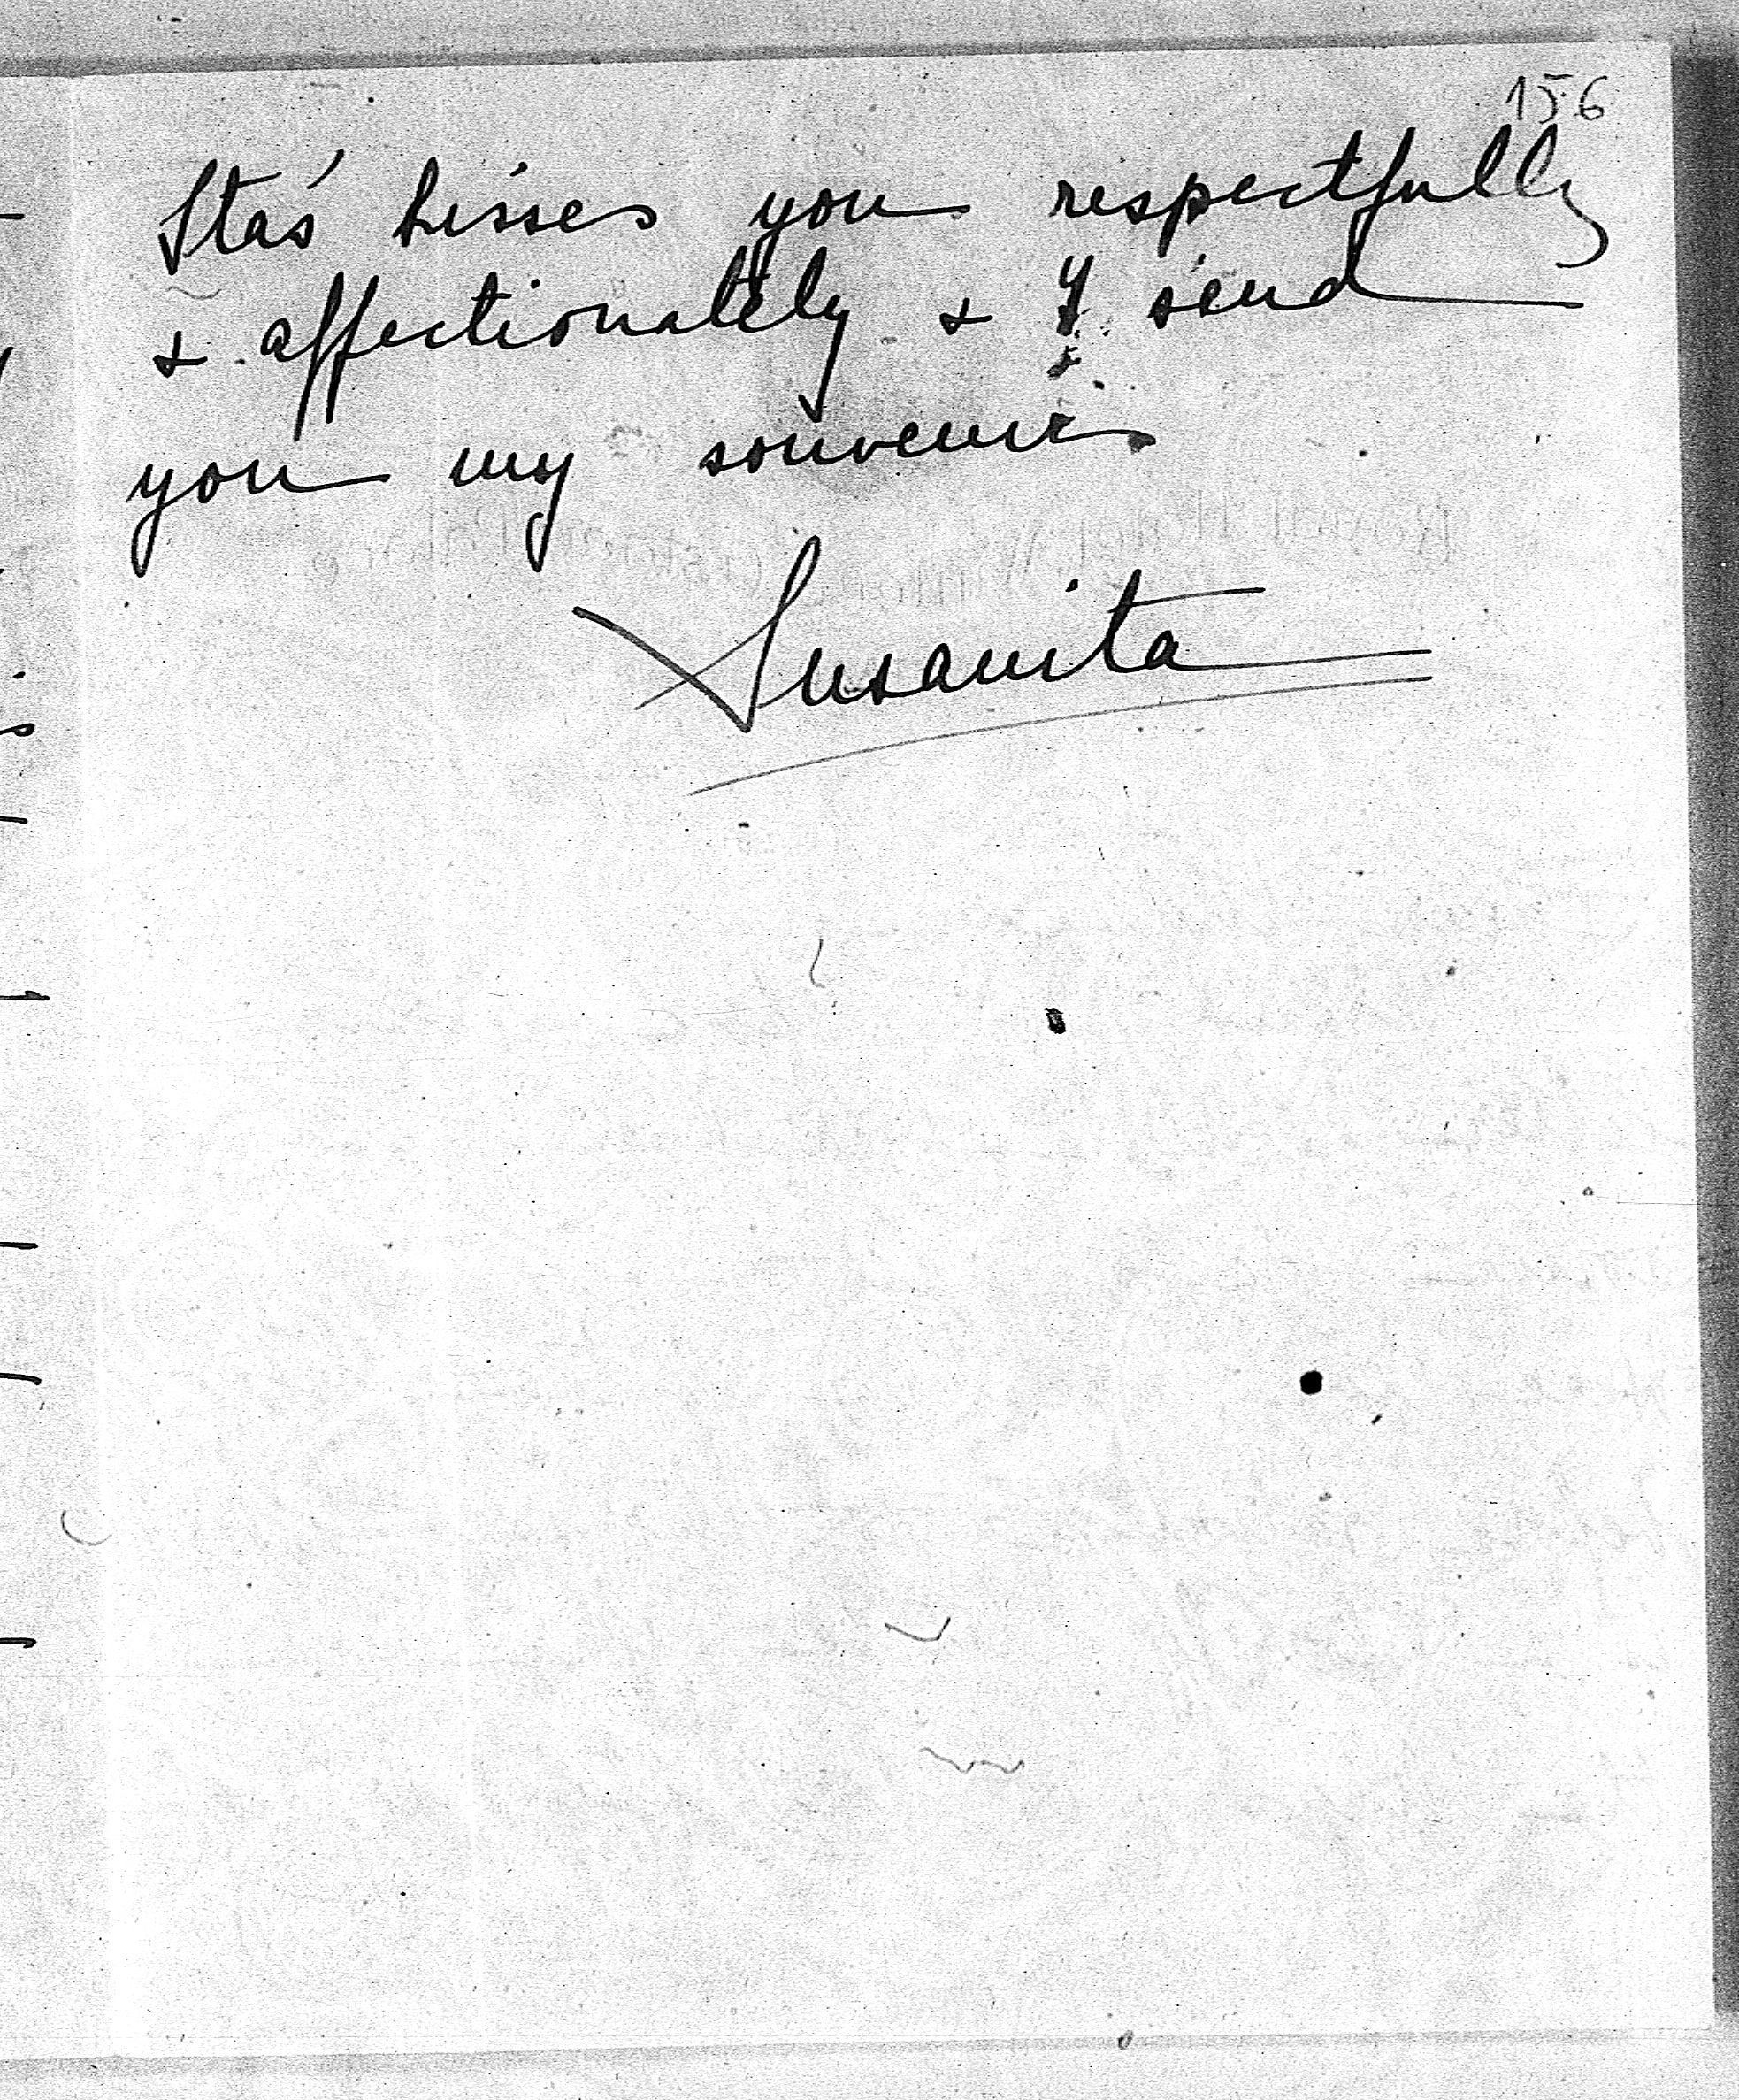 156
Staś kisses you respectfully
& affectionately & I send
you my souvenirs
Susanita